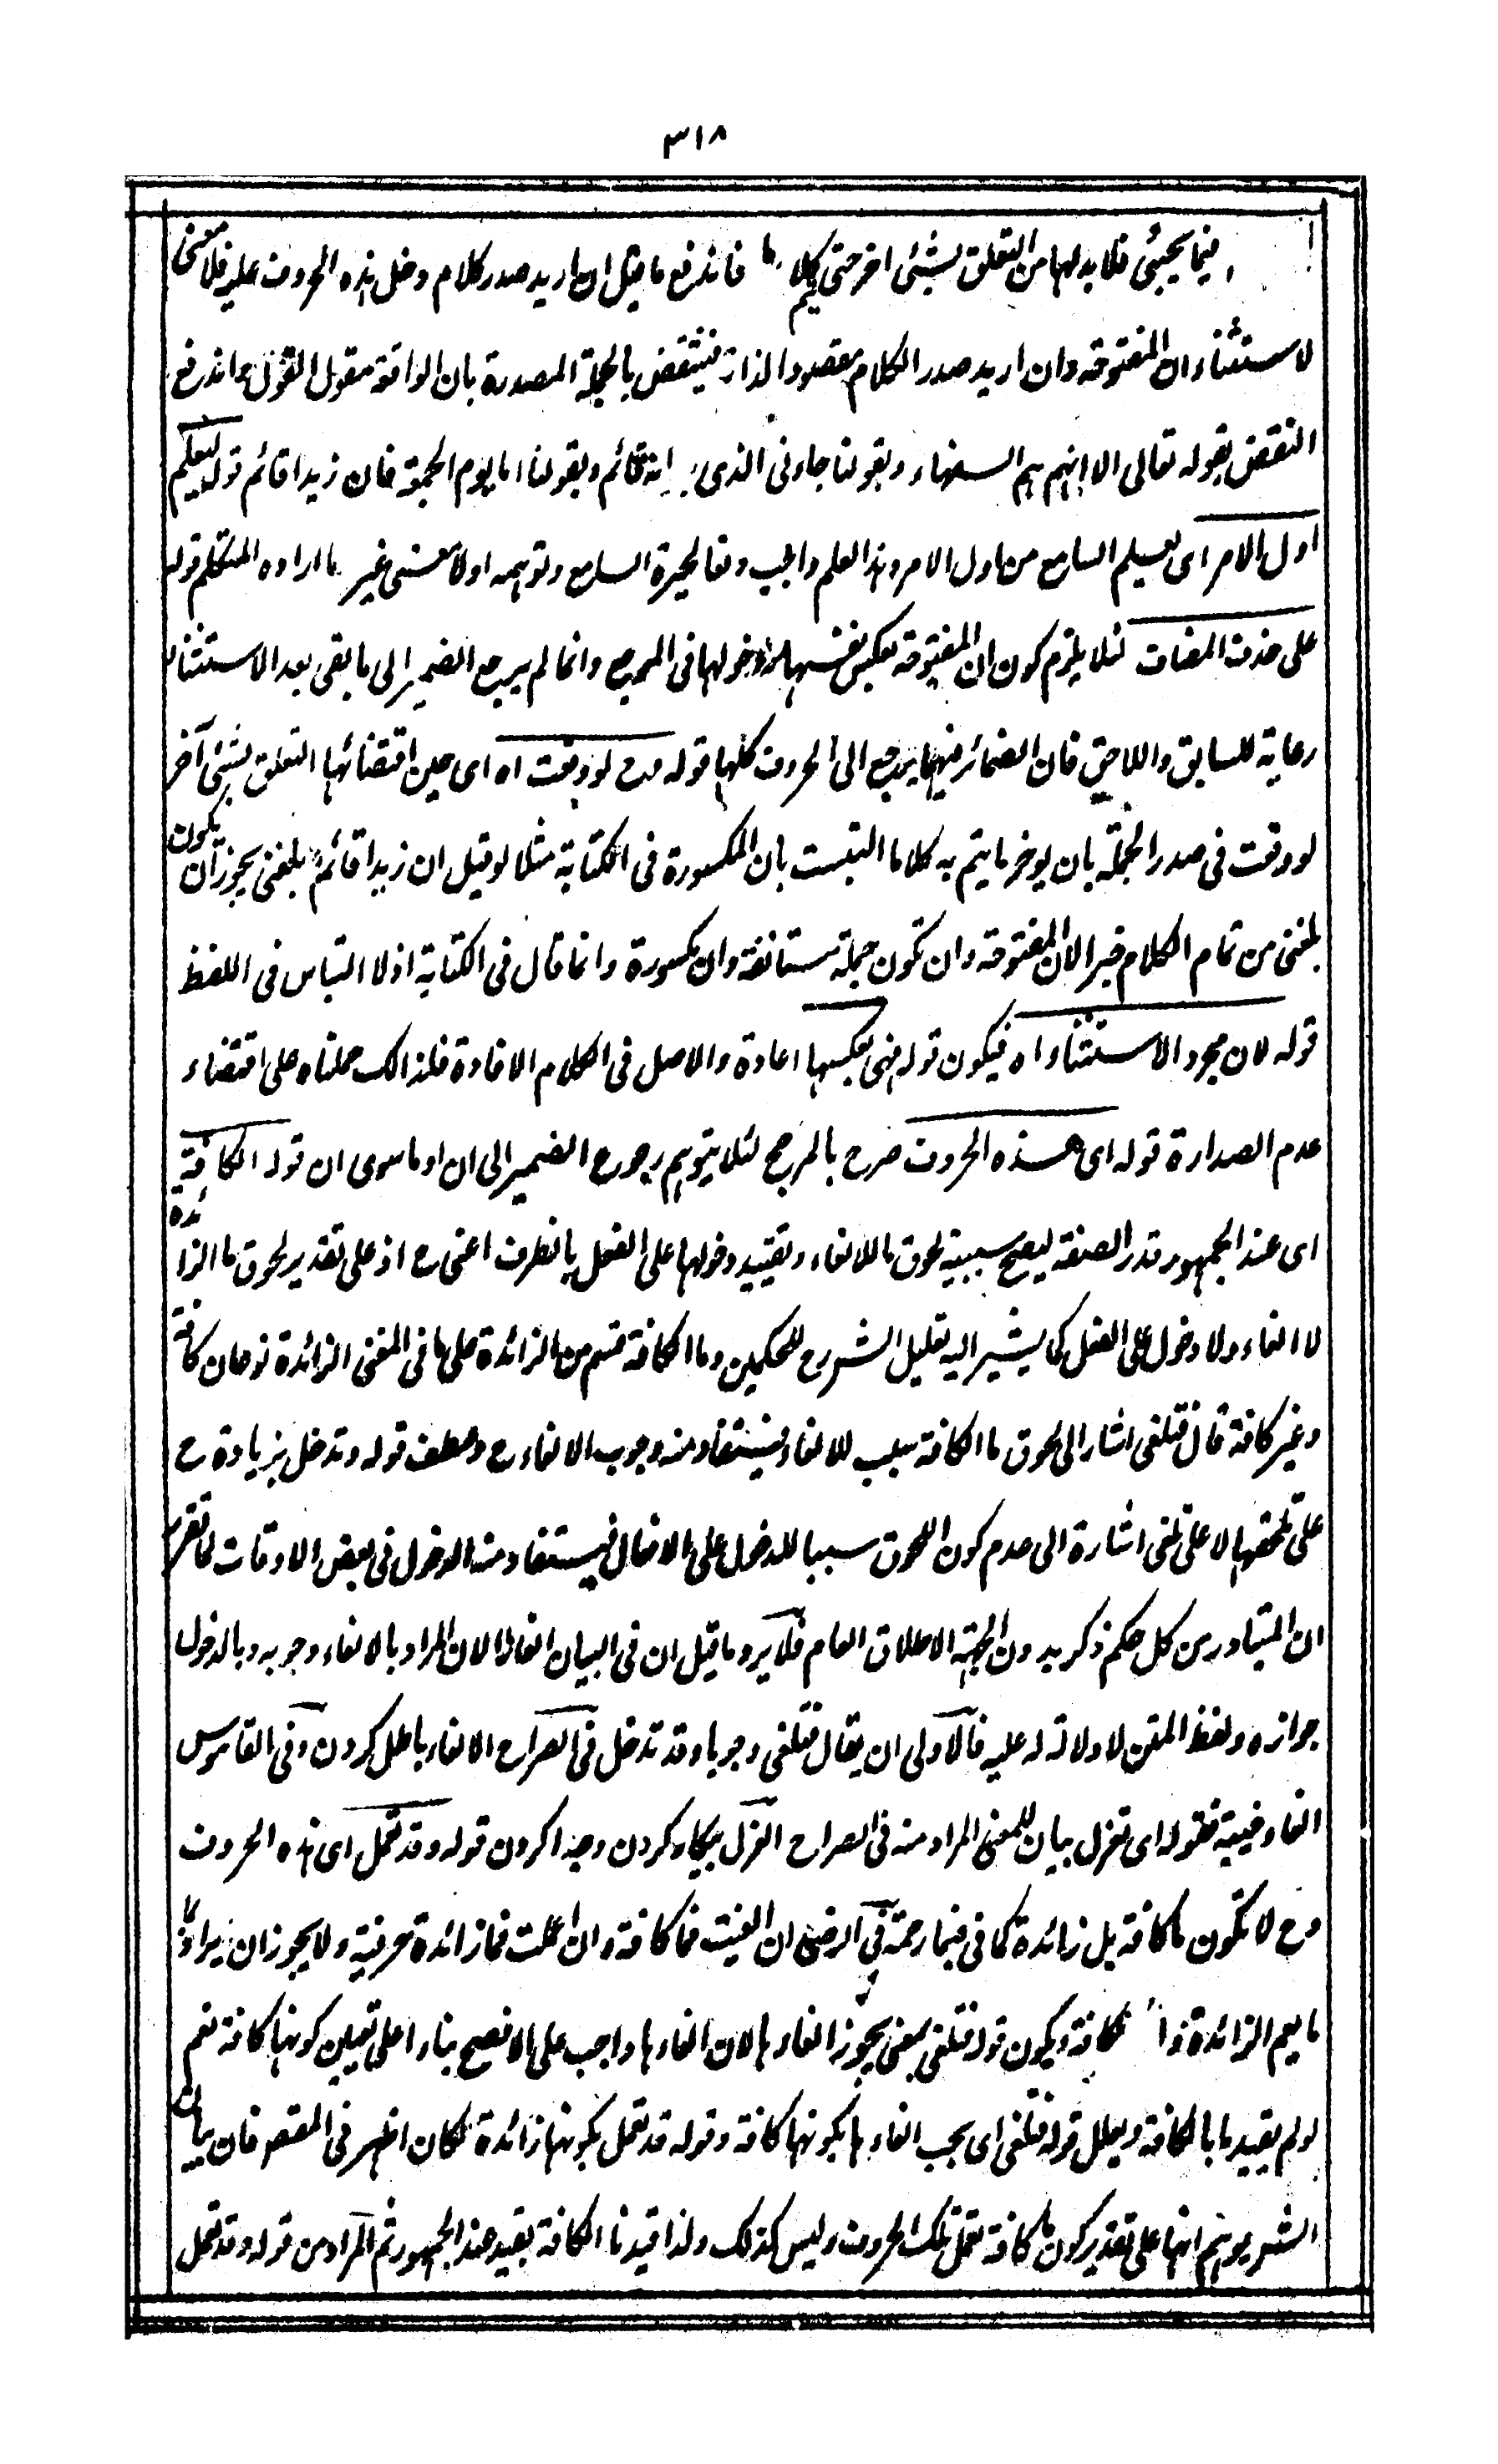 ٣١٨
فيما يجيئ فلا بد لها من التعلق بشئ اخر حتى يتم كلاما فاندفع ما قيل ان اريد صدر كلام دخل هذه الحروف عليه فلا معنى
لاستثناء ان المفتوحة وان اريد صدر الكلام مقصود الذات فينتقض بالجملة المصدرة بان الواقعة مقول القول واندفع
النقض بقوله تعالى الا انهم هم السفهاء وبقولنا جاءنى الذى انه قائم وبقولنا اما يوم الجمعة فان زيدا قائم قوله ليعلم
اول الامر اى ليعلم السامع من اول الامر وهذا العلم واجب دفعا لحيرة السامع وتوهمه اولا معنى غير ما اراده المتكلم قوله
على حذف المضاف لئلا يلزم كون ان المفتوحة بعكس نفسها لدخولها فى المرجع وانما لم يرجع الضمير الى ما بقى بعد الاستثناء
رعاية للسابق واللاحق فان الضمائر فيهما يرجع الى الحروف كلها قوله مع لو وقعت اه اى حين اقتضائها التعلق بشئ آخر
لو وقعت فى صدر الجملة بان يوخر ما يتم به كلاما التبست بان المكسورة فى الكتابة مثلا لو قيل ان زيدا قائم بلغنى يجوز ان يكون
بلغنى من تمام الكلام خبرا لان المفتوحة وان تكون جملة مستانفة وان مكسورة وانما قال فى الكتابة اذ لا التباس فى اللفظ
قوله لان مجرد الاستثناء اه فيكون قوله فهى بعكسها اعادة والاصل فى الكلام الافادة فلذالك حملناه على اقتضاء
عدم الصدارة قوله اى هذه الحروف صرح بالمرجع لئلا يتوهم رجوع الضمير الى ان او ما سوى ان قوله الكافة
اى عند الجمهور قدر الصفة ليصح سببية لحوق ما للالغاء وتقييد دخولها على الفعل بالظرف اعنى ح اذ على تقدير لحوق ما الزائدة
لا الغاء ولا دخول على الفعل كما يشير اليه تعليل الشرح للحكمين وما الكافة قسم من الزائدة على ما فى المغنى الزائدة نوعان كافة
وغير كافة قال فتلغى اشار الى لحوق ما الكافة سبب للالغاء فيستفاد منه وجوب الالغاء ح وعطف قوله وتدخل بزيادة ح
على تلحقها لا على تلغى اشارة الى عدم كون اللحوق سببا للدخول على الافعال فيستفاد منه الدخول فى بعض الاوقات لما تقرر
ان المتبادر من كل حكم ذكر بدون الجهة الاطلاق العام فلا يرد ما قيل ان فى البيان الغازا لان المراد بالالغاء وجوبه وبالدخول
جوازه ولفظ المتن لا دلالة له عليه فالاولى ان يقال فتلغى وجوبا وقد تدخل فى الصراح الالغاء باطل كردن وفى القاموس
الغاء خيبة فقوله اى تعزل بيان للمعنى المراد منه فى الصراح العزل بيكار كردن وجدا كردن قوله وقد تعمل اى هذه الحروف
وح لا تكون ما كافة بل زائدة كما فى فبما رحمة فى الرضى ان الغيت فما كافة وان اعملت فما زائدة حرفية ولا يجوز ان يراد بما
ما يعم الزائدة والكافة ويكون قوله فتلغى بمعنى يجوز الغاءها لان الغاءها واجب على الافصح بناء على تعيين كونها كافة نعم
لو لم يقيد ما بالكافة ويعلل قوله فتلغى اى يجب الغاءها بكونها كافة وقوله قد تعمل بكونها زائدة لكان اظهر فى المقصود فان بيان
الشرح يوهم انها على تقدير كون ما كافة تعمل تلك الحروف وليس كذلك ولذا قيدنا الكافة بقيد عند الجمهور ثم المراد من قوله وقد تعمل